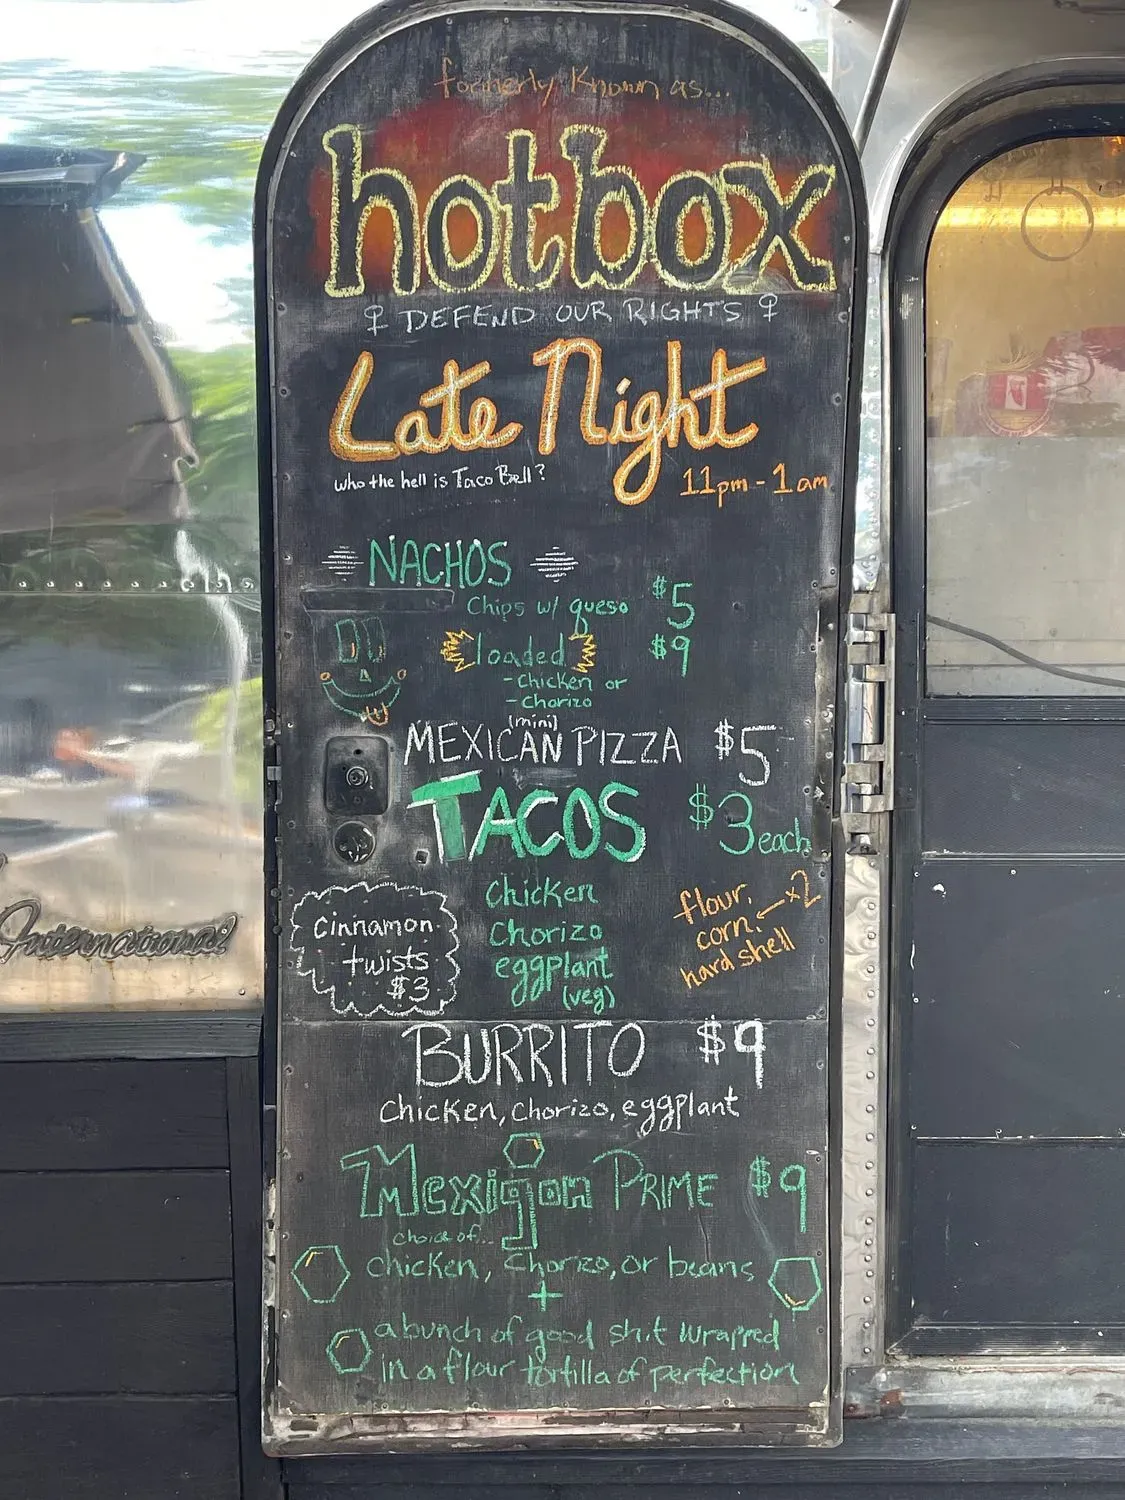 formerly Known as...
hotbox
♀ DEFEND OUR RIGHTS ♀
Late Night
who the hell is Taco Bell?
11pm - 1am
NACHOS
Chips w/ queso $5
loaded $9
- Chicken or
- Chorizo
(mini)
MEXICAN PIZZA $5
TACOS $3 each
Chicken
Chorizo
eggplant
(veg)
flour,
corn, ← x2
hard shell
Cinnamon
twists
$3
BURRITO $9
chicken, chorizo, eggplant
Mexigon PRIME $9
choice of...
chicken, chorizo, or beans
+
a bunch of good shit wrapped
in a flour tortilla of perfection
International